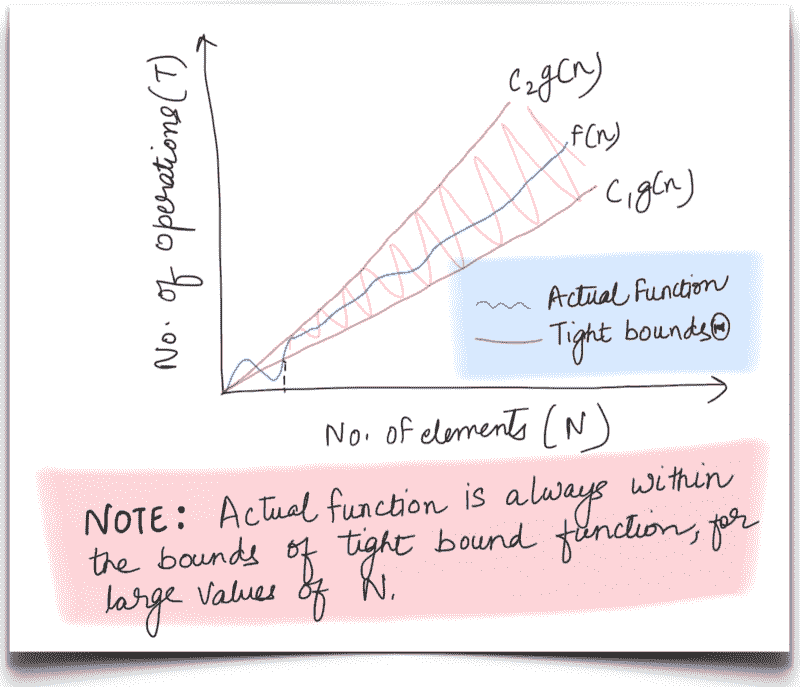 No. of operations(T)
C₂g(n)
f(n)
C₁g(n)
Actual function
Tight bounds Θ
No. of elements (N)
NOTE: Actual function is always within
the bounds of tight bound function, for
large values of N.